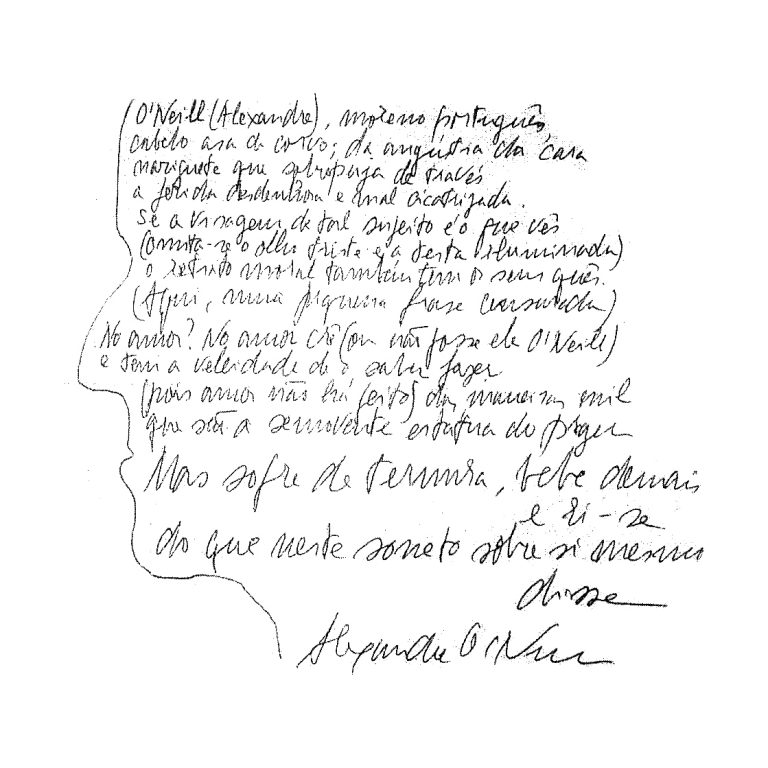 O'Neill (Alexandre), moreno português,
cabelo asa de corvo; da angústia da cara
nariguete que sobrepuja de través
a ferida desdenhosa e mal cicatrizada.
Se a visagem de tal sujeito é o que vês
(omita-se o olho triste e a testa iluminada)
o retrato moral também tem os seus quês.
(Aqui, uma pequena frase censurada)
No amor? No amor crê (ou não fosse ele O'Neill)
e tem a veleidade de o saber fazer
(pois amor não há feito) das maneiras mil
que são a semovente estátua do prazer
Mas sofre de ternura, bebe demais
e ri-se
do que neste soneto sobre si mesmo
disse
Alexandre O'Neill